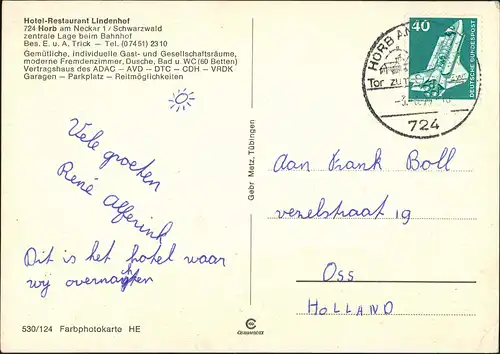 Hotel-Restaurant Lindenhof
724 Horb am Neckar 1 / Schwarzwald
zentrale Lage beim Bahnhof
Bes. E. u. A. Trick – Tel. (07451) 2310
Gemütliche, individuelle Gast- und Gesellschaftsräume,
moderne Fremdenzimmer, Dusche, Bad u. WC (60 Betten)
Vertragshaus des ADAC – AVD – DTC – CDH – VRDK
Garagen – Parkplatz – Reitmöglichkeiten
Vele groeten
René Alferink
Dit is het hotel waar
wij overnachten
530/124 Farbphotokarte HE
Gebr. Metz, Tübingen
HORB AM
Tor zum
724
40
DEUTSCHE BUNDESPOST
Aan Frank Boll
vezelstraat 19
Oss
HOLLAND